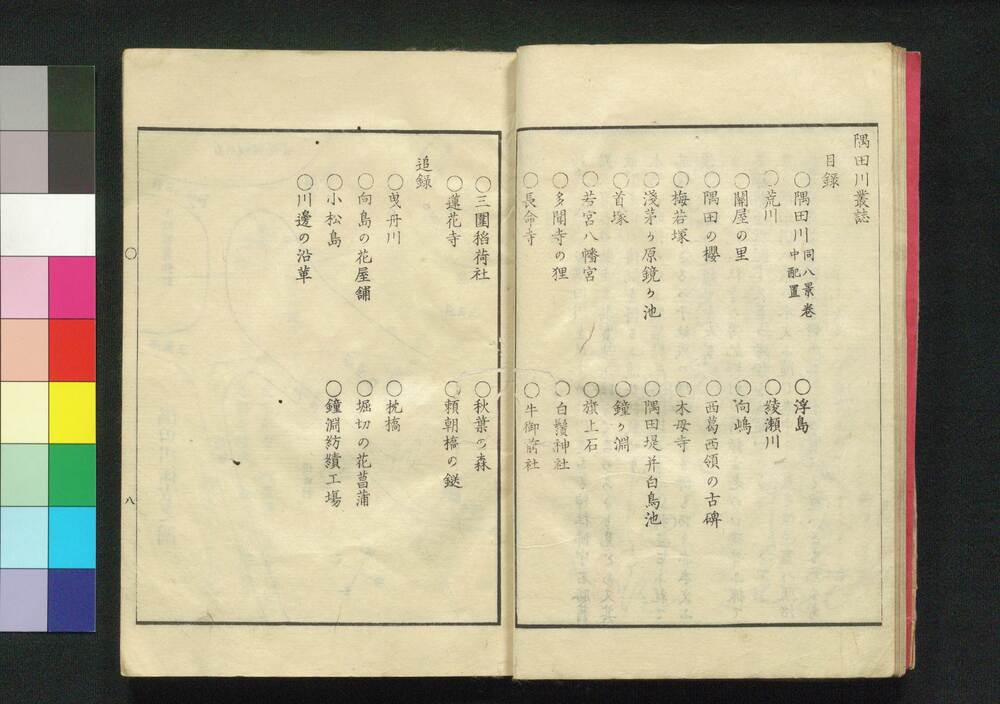 隅田川叢誌
目録
〇隅田川 同八景巻中配置
〇浮島
〇荒川
〇綾瀬川
〇關屋の里
〇向嶋
〇隅田の櫻
〇西葛西領の古碑
〇梅若塚
〇木母寺
〇淺茅ヶ原鏡ヶ池
〇隅田堤并白鳥池
〇首塚
〇鐘ヶ淵
〇若宮八幡宮
〇旗上石
〇多聞寺の狸
〇白鬚神社
〇長命寺
〇牛御前社
〇三圍稻荷社
〇秋葉の森
〇蓮花寺
〇頼朝橋の鎹
追録
〇曳舟川
〇枕橋
〇向島の花屋舗
〇堀切の花菖蒲
〇小松島
〇鐘淵紡績工場
〇川邊の沿革
〇
八